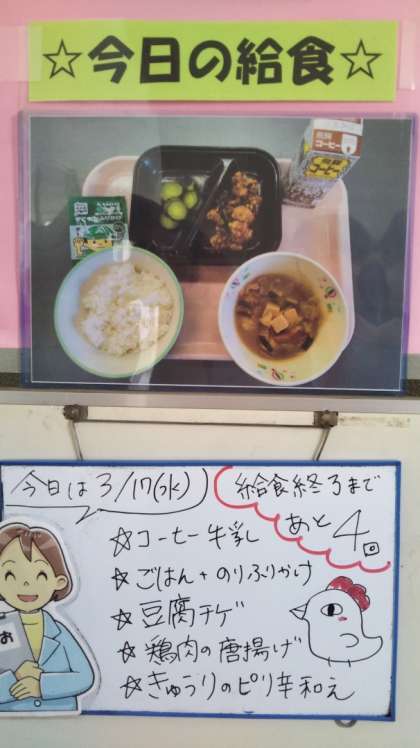 ☆今日の給食☆
コーヒー
今日は3/17(水)
給食終了まで
あと4回
☆コーヒー牛乳
☆ごはん+のりふりかけ
☆豆腐チゲ
☆鶏肉の唐揚げ
☆きゅうりのピリ辛和え
お